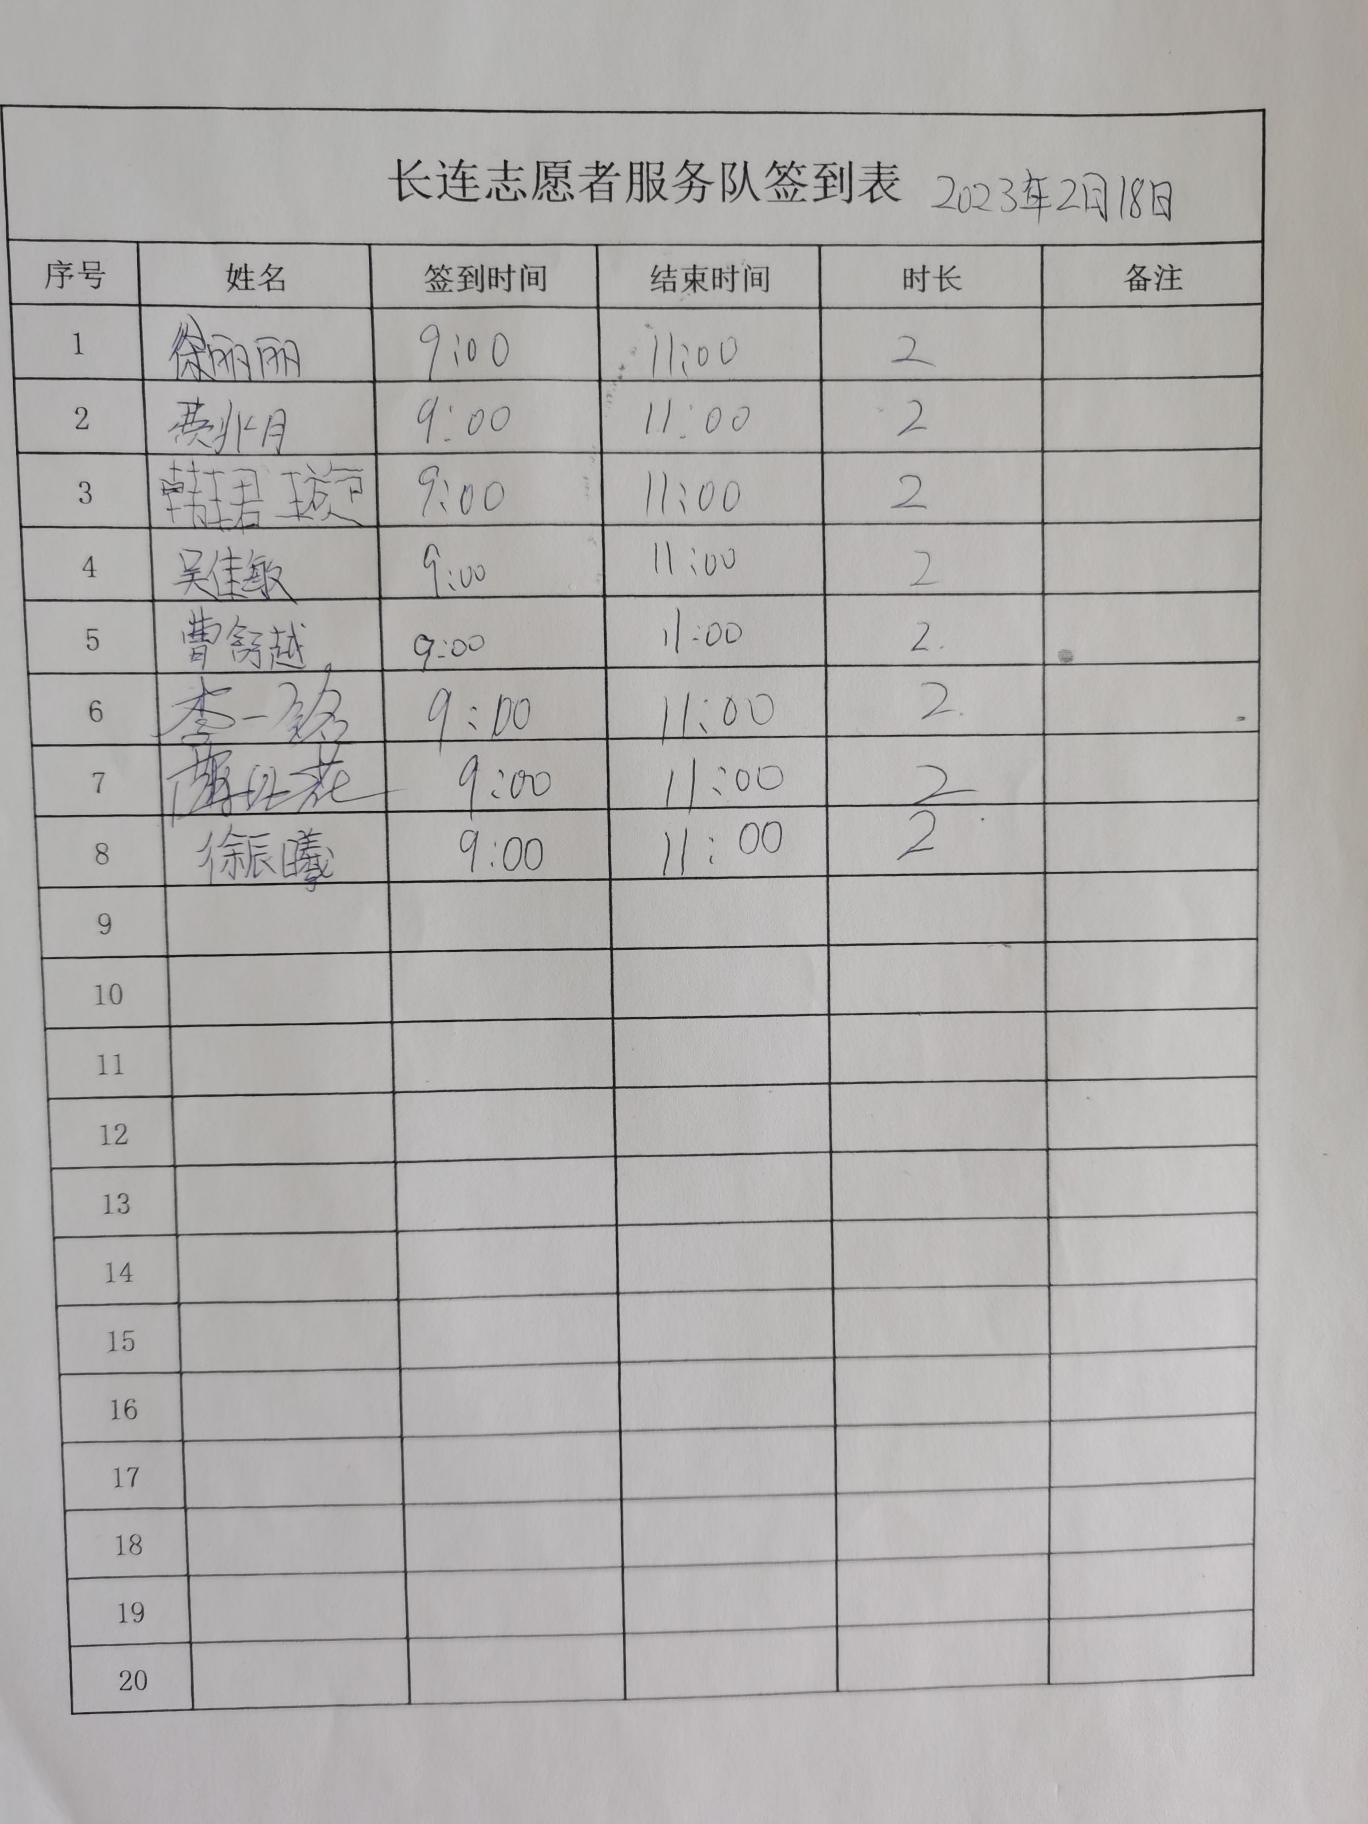 长连志愿者服务队签到表 2023年2月18日
序号 姓名 签到时间 结束时间 时长 备注
1 徐丽丽 9:00 11:00 2
2 费兆月 9:00 11:00 2
3 韩珺璇 9:00 11:00 2
4 吴佳敏 9:00 11:00 2
5 曹舒越 9:00 11:00 2.
6 李一铭 9:00 11:00 2.
7 9:00 11:00 2
8 徐辰曦 9:00 11:00 2
9
10
11
12
13
14
15
16
17
18
19
20